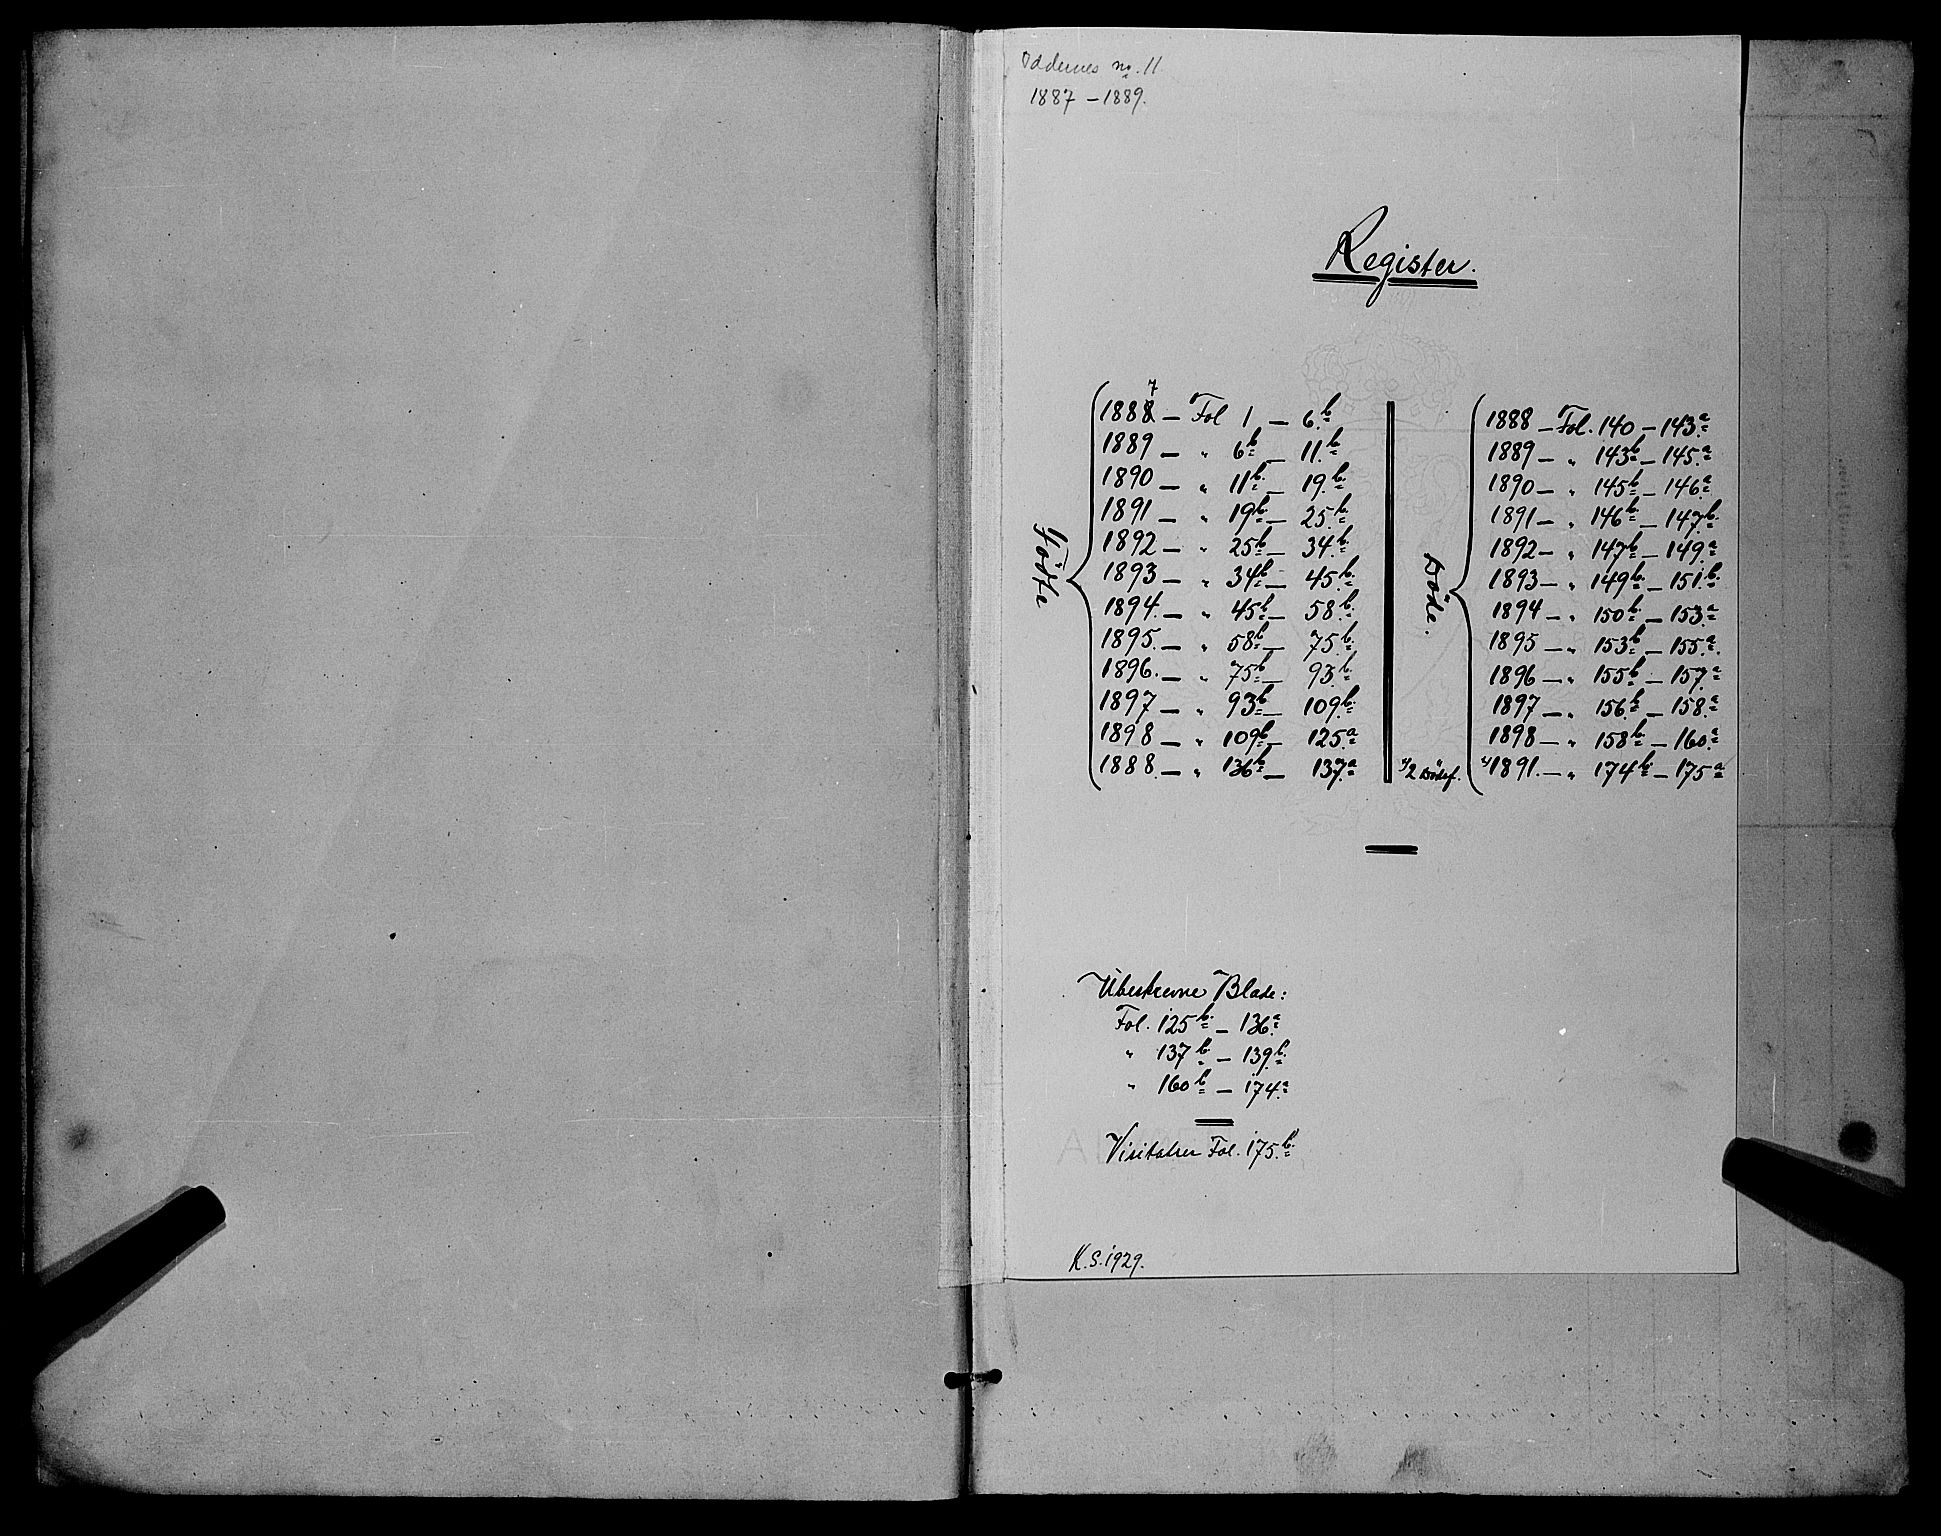 Oddernes no. 11.
1887 – 1889.
Register.
Födte
1888 7 – Fol 1 – 6.b
1889 – „ 6b – 11.b
1890 – „ 11b. – 19.b.
1891 – „ 19b – 25.b
1892 – „ 25b – 34.b
1893 – „ 34b – 45.b.
1894. – „ 45b – 58.b.
1895. – „ 58b – 75.b.
1896. – „ 75b – 93.b.
1897 – „ 93b – 109.b.
1898 – „ 109b – 125.a
1888. – „ 136b – 137.a
Döde.
1888 – Fol. 140 – 143.a
1889 – „ 143b – 145.a
1890 – „ 145b – 146.a
1891 – „ 146b – 147.b.
1892 – „ 147b – 149.a
1893 – „ 149b. – 151.b.
1894 – „ 150b – 153.a
1895 – „ 153b – 155.a.
1896 – „ 155b – 157.a
1897 – „ 156b – 158.a
1898 – „ 158b – 160.a
Dödf. 1891. – „ 174b – 175a
Ubeskrevne Blade:
Fol. 125b. – 136.a
„ 137b. – 139.b.
„ 160b – 174.a
Visitatser Fol. 175.b.
K.S. 1929.